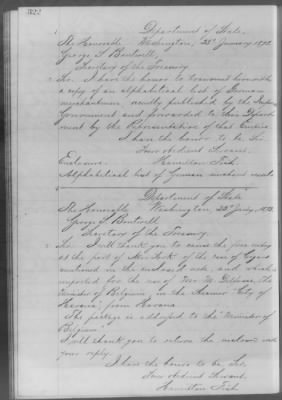 Department of State
The Honorable Washington, 23 January 1872
George S. Boutwell,
Secretary of the Treasury.
Sir. I have the honor to transmit herewith
a copy of an alphabetical list of German
merchantmen, newly published by the
Government and forwarded to this Depart-
ment by the Representative of that Empire
I have the honor to be Sir
Your obedient Servant.
Enclosure. Hamilton Fish.
Alphabetical list of German merchant
Department of State
The Honorable Washington
George S. Boutwell
Secretary of the Treasury.
Sir. I will thank you to cause the free entry
at the port of New York of the case of cigars
mentioned in the enclosed note, and which
imported for the use of Mr. M. Delfosse, the
Minister of Belgium, in the steamer "City of
Havana", from Havana
The package is addressed to the "Minister of
Belgium"
I will thank you to return the enclosure with
your reply.
I have the honor to be, Sir,
Your obedient Servant,
Hamilton Fish